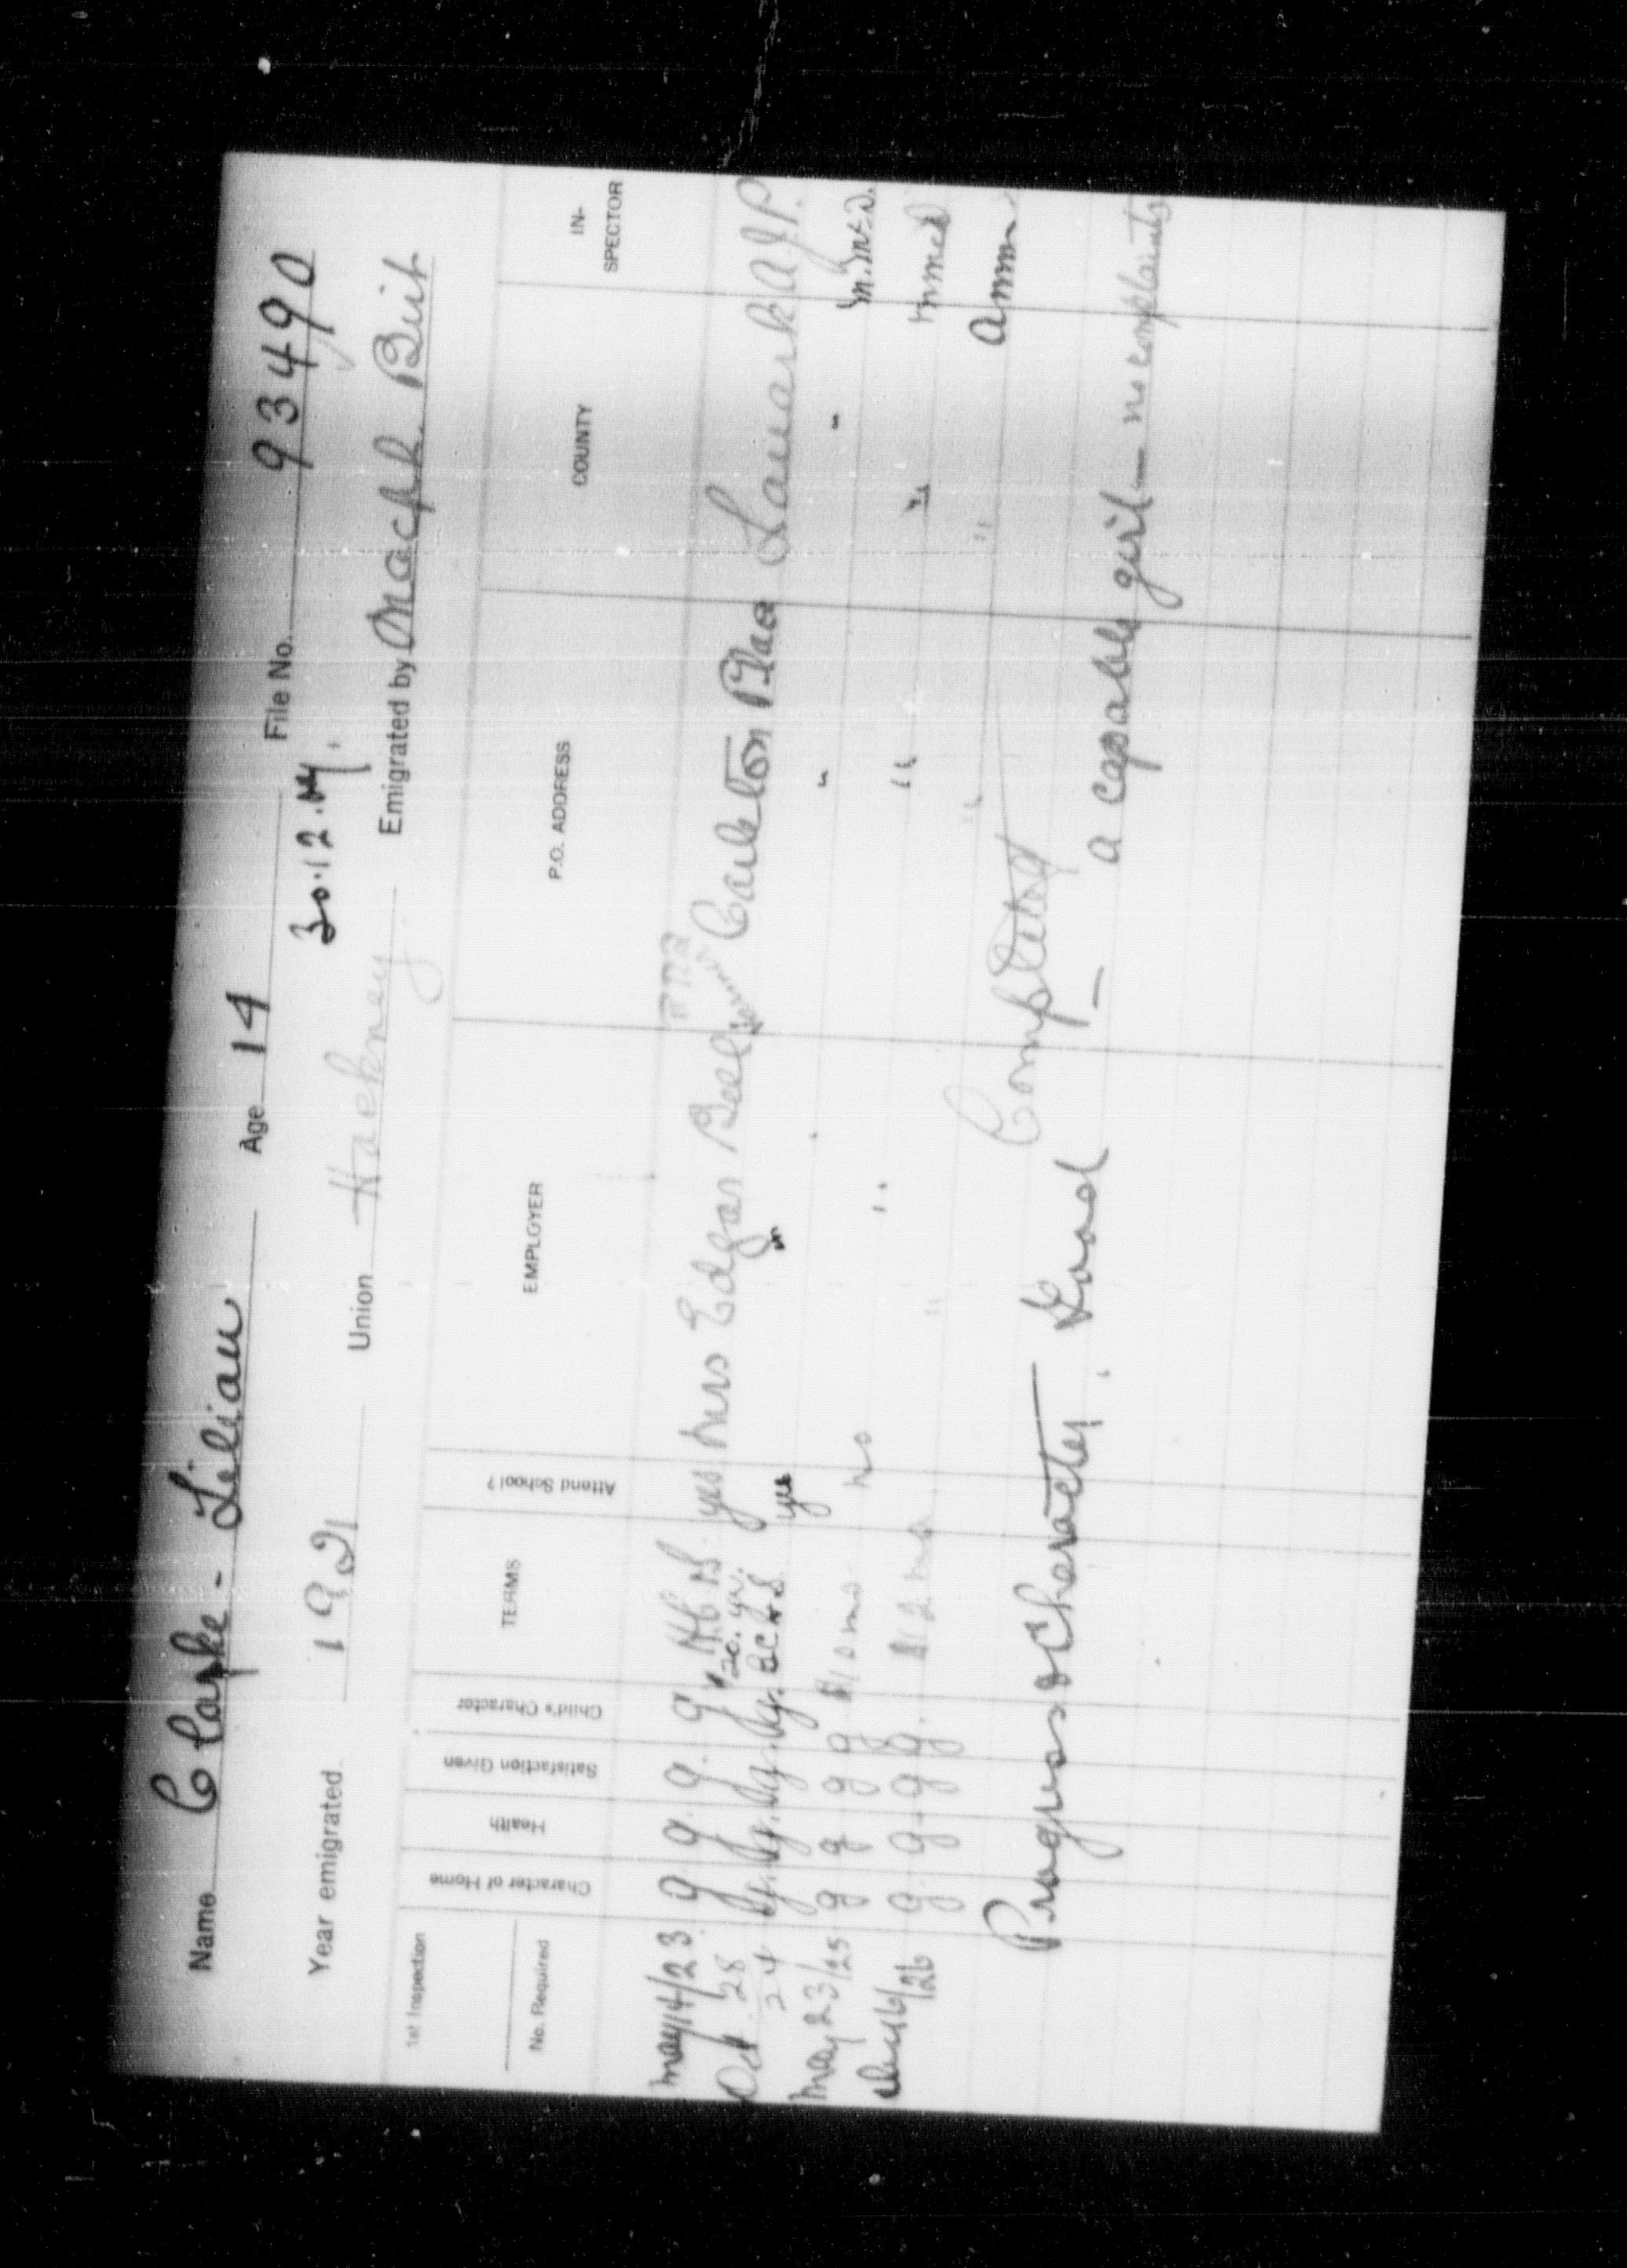 Name Clarke - Lilian Age 14 File No. 93490
30.12.
Year emigrated 1921 Union Hackney Emigrated by Macph. Brit
1st Inspection
No. Required
Character of Home Health Satisfaction Given Child's Character TERMS Attend School? EMPLOYER P.O. ADDRESS COUNTY IN-SPECTOR
May 14/23 g. g. g. g. yes Mrs Edgar Bell Carleton Place Lanark A.J.P.
Oct 28 24 g. g. g. g. B C & S yes " " " M.McD.
May 23/25 g g g g 10 mo no " " "
16/26 g. g g g. 12 " " " amm
Completed
Progress & Character. Good — a capable girl — no complaints